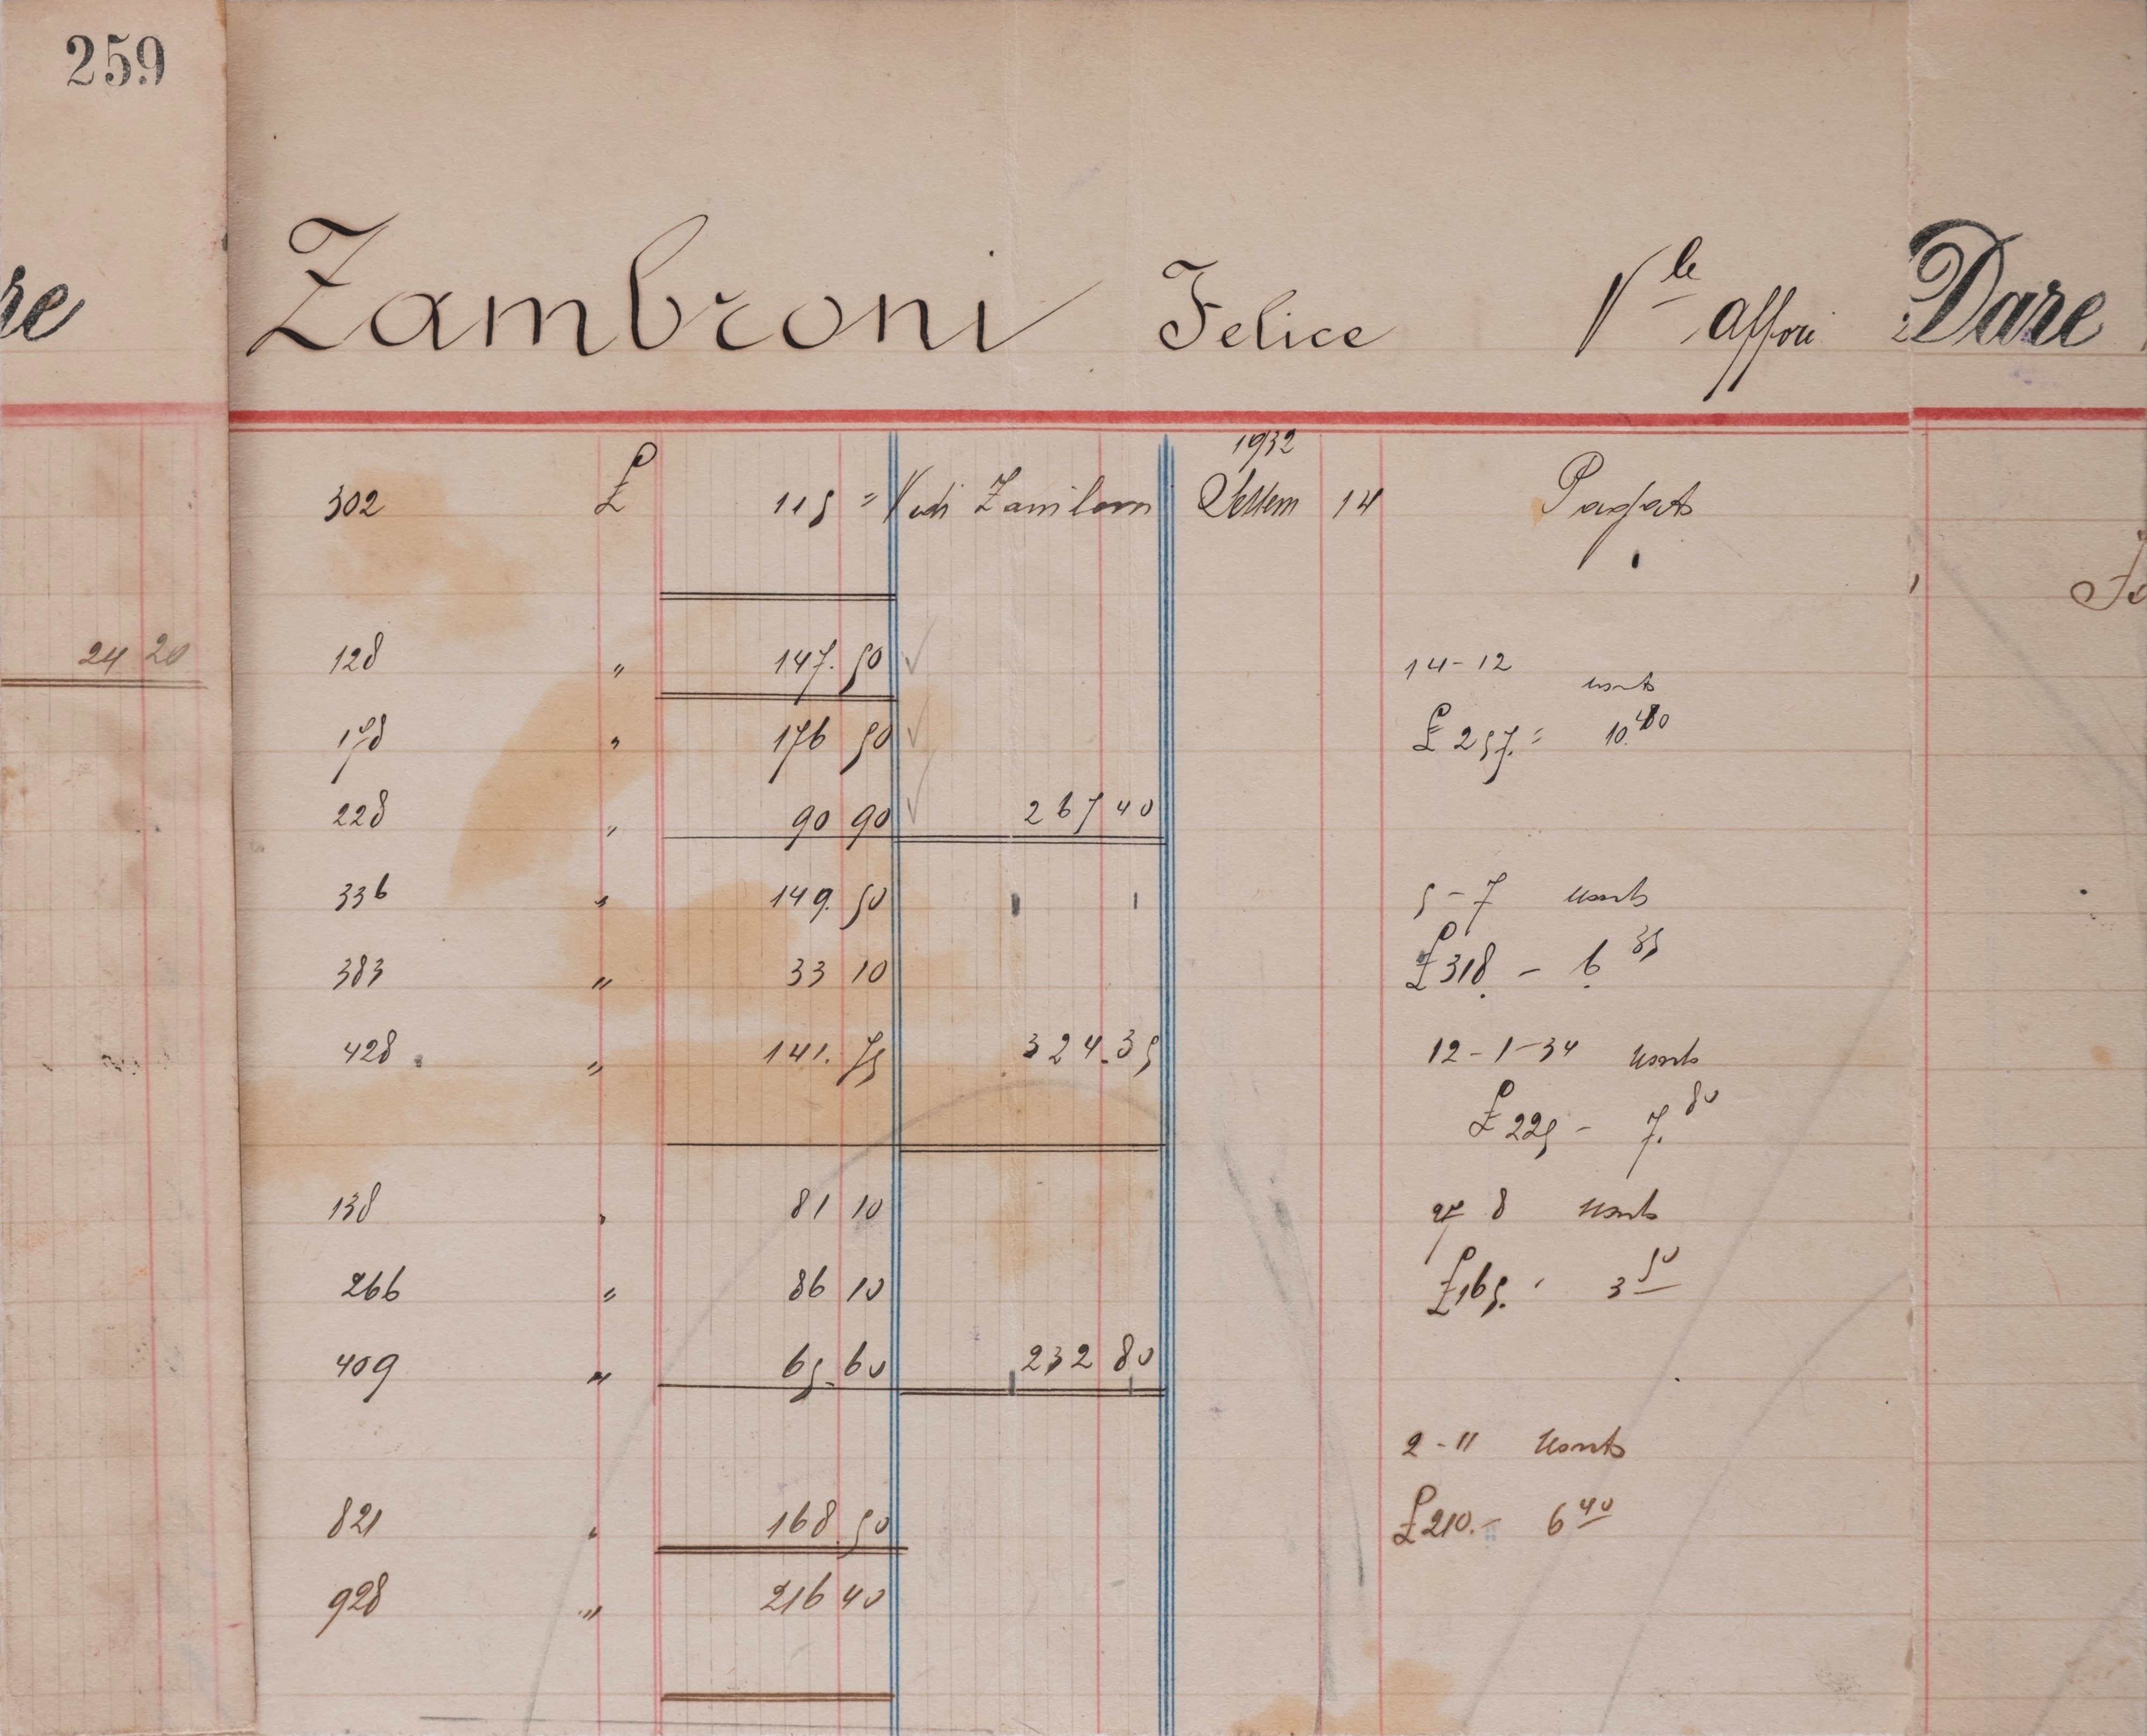 259
re Zambroni Felice Vle Affori Dare
1932
302 £ 115 = Vedi Settem 14 Pagato
24 20 128 " 147. 50 14-12
178 " 176 50 £ 257. = 10.40
228 " 90 90 267 40
336 " 149. 50 5-7
383 " 33 10 £318 - 6. 35
428 " 141. 75 324.35 12-1-34
£ 225 - 7. 80
138 " 81 10 27 8
266 " 86 10 £165. 3 50
409 " 65.60 232 80
2-11
821 " 168.50 £210.- 6 40
928 " 216 40